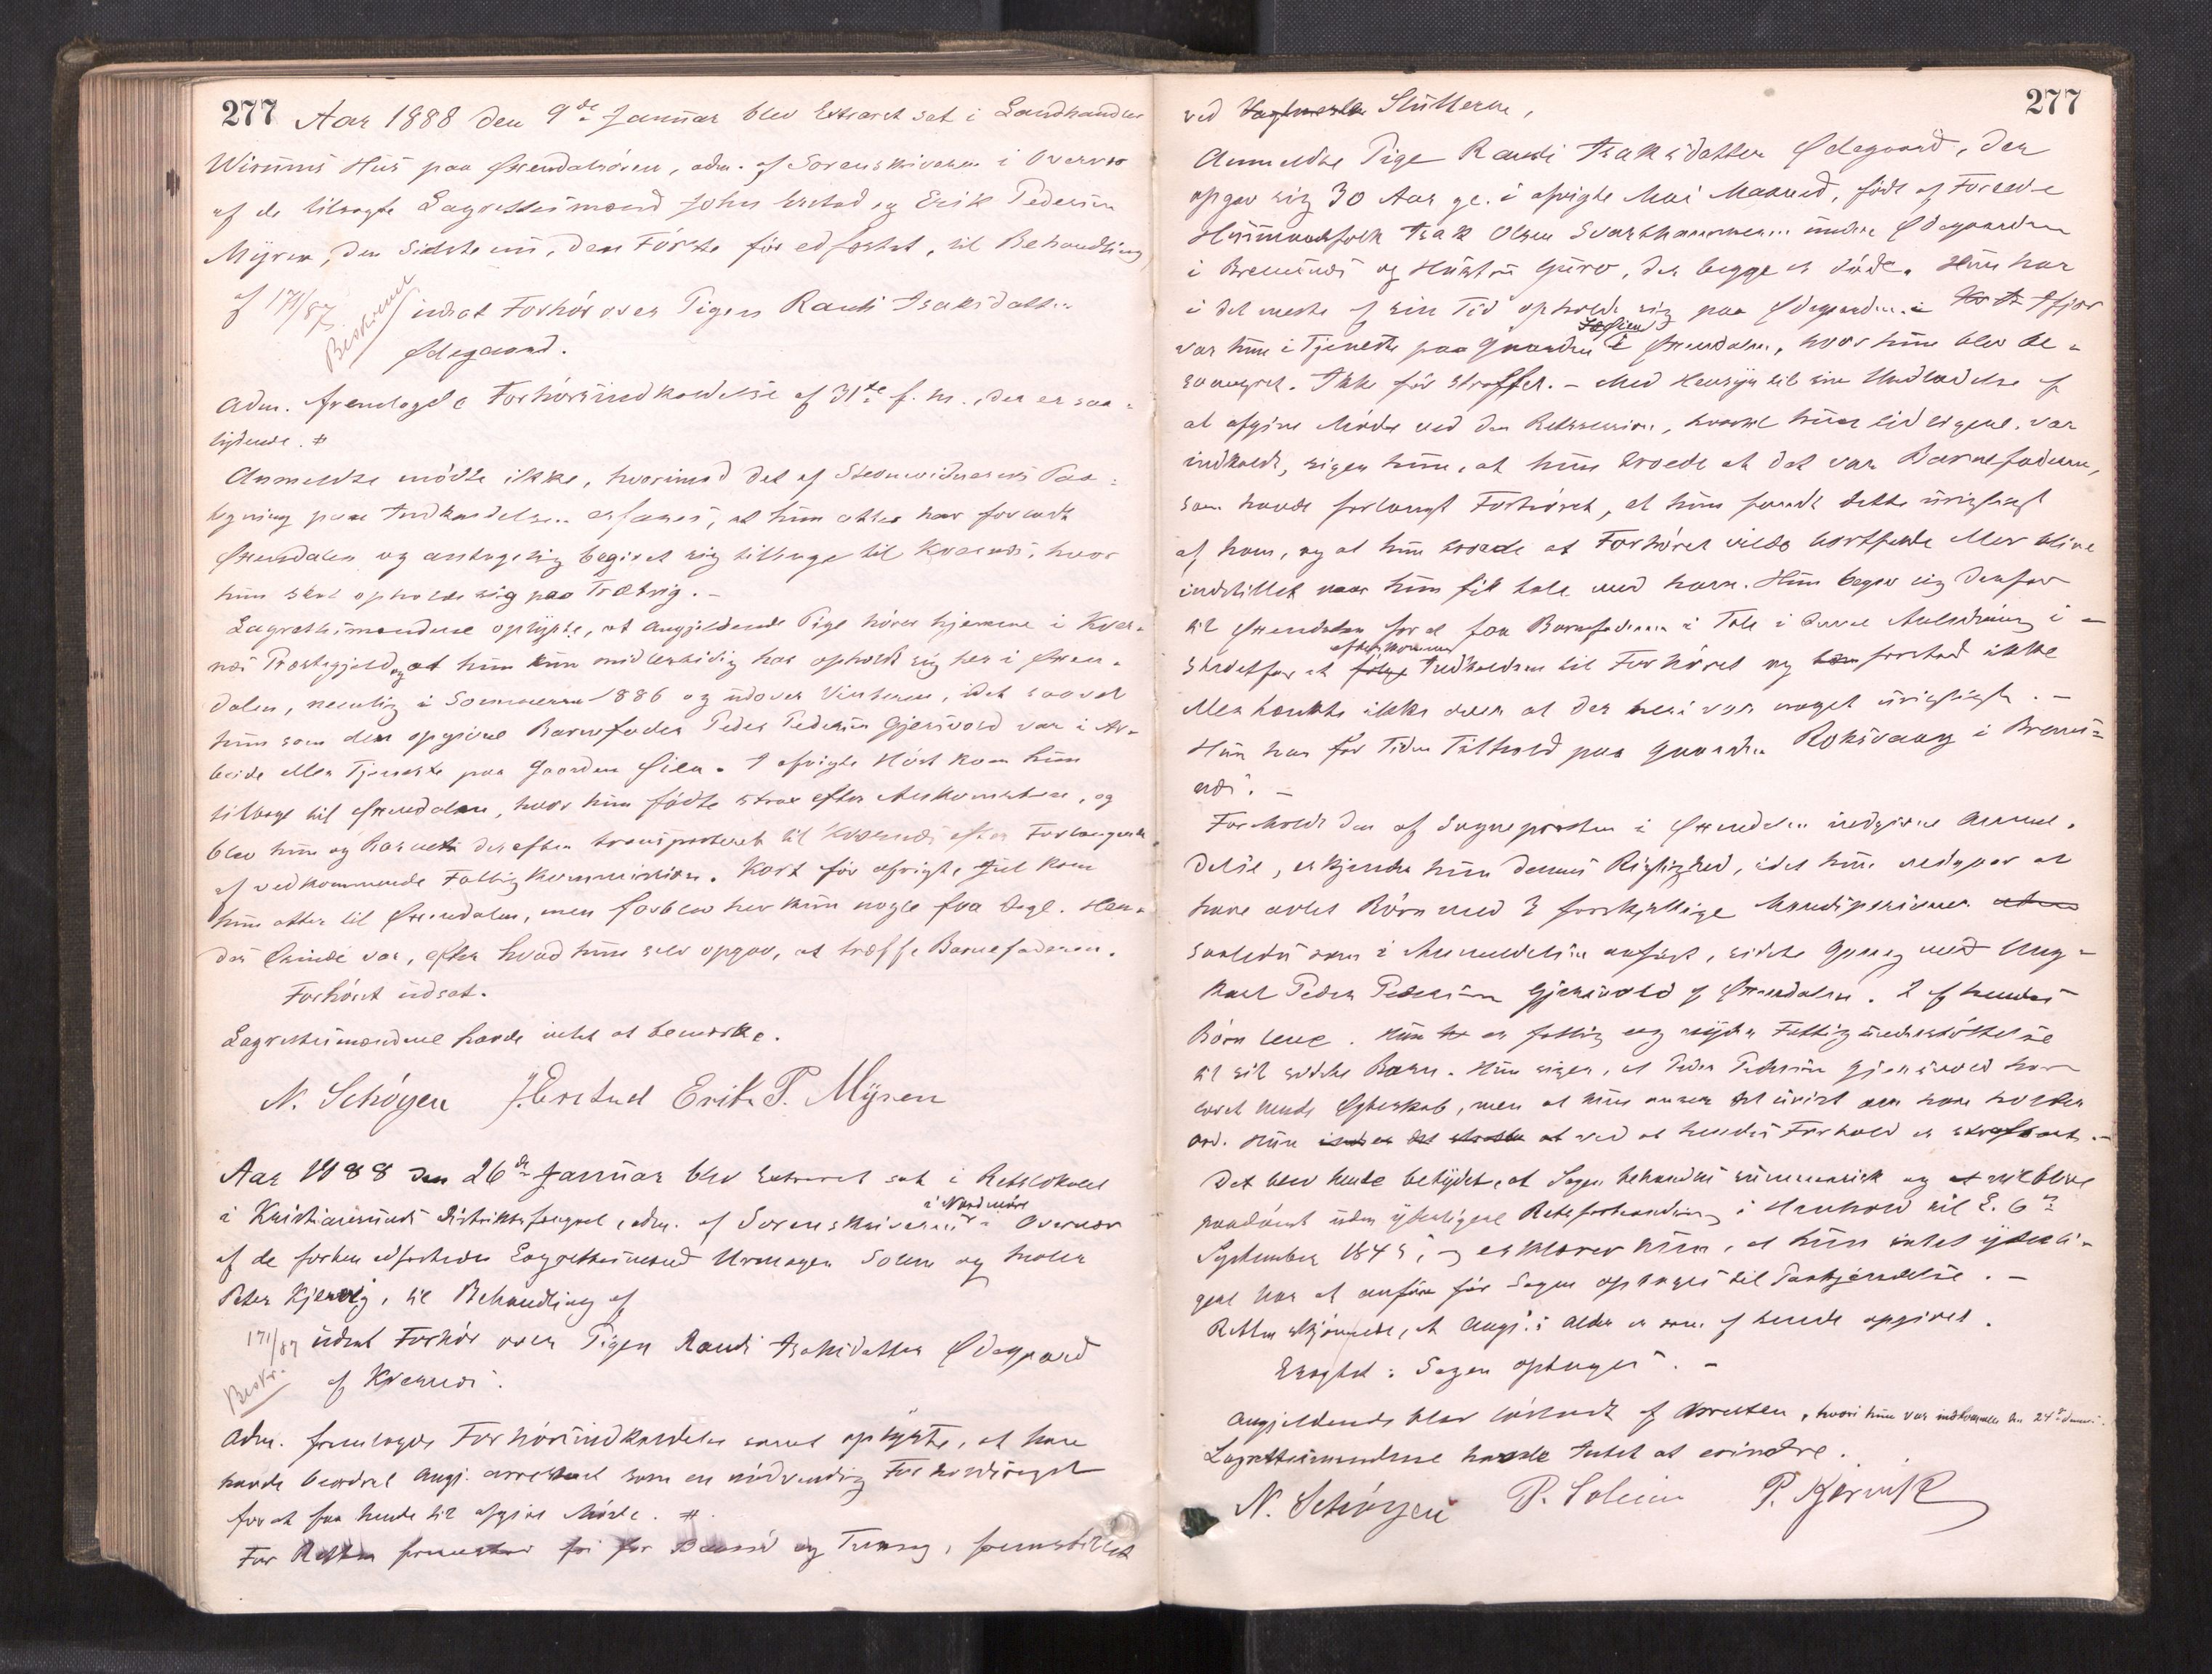 277
Aar 1888 den 9de Januar blev Extraret sat i Landhandler
Wirums Hus paa Øxendalsøren, adm. af Sorenskriveren i Overvær
af de tilsagte Lagrettesmænd John Erstad og Erik Pedersen
Myren, den Sidste nu, den Første før edfæstet, til Behandling
af 171/87,
Beskrevet
udsat Forhør over Pigen Randi Isaksdatter
Ødegaard.
Adm. fremlagde Forhørsindkaldelse af 31te f. M., der er saa-
lydende. #
Anmeldte mødte ikke, hvorimod det af Stevnevidnernes Paa-
tegning paa Indkaldelsen erfares, at hun atter har forladt
Øxendalen og antagelig begivet sig tilbage til Kvernes, hvor
hun skal opholde sig paa Trætvig. -
Lagrettesmændene oplyste, at angjældende Pige hører hjemme i Kver-
næs Præstegjæld, og at hun kun midlertidig har opholdt sig her i Øxen-
dalen, nemlig i Sommeren 1886 og udover Vinteren, idet saavel
hun som den opgivne Barnefader Peder Pedersen Gjersvold var i Ar-
beide eller Tjeneste paa Gaarden Øien. I afvigte Høst kom hun
tilbage til Øxendalen, hvor hun fødte strax efter Ankomsten, og
blev hun og Barnet derefter transporteret til Kvernes efter Forlangende
af vedkommende Fattigkommission. Kort før afvigte Jul kom
hun atter til Øxendalen, men forblev her kun nogle faa Dage. Hen-
des Ærinde var, efter hvad hun selv opgav, at træffe Barnefaderen.
Forhøret udsat.
Lagrettesmændene havde intet at bemærke.
N. Schøyen J. Erstad Erik P. Myren
Aar 1888 den 26de Januar blev Extraret sat i Retslokalet
i Kristiansunds Distriktsfængsel, adm. af Sorenskriveren i Nordmøre i Overvær
af de forhen edfæstede Lagrettesmænd Urmager Solem og Maler
Peter Kjervig, til Behandling af
171/87 udsat Forhør over Pigen Randi Isaksdatter Ødegaard
Beskr.
af Kvernes.
Adm. fremlagde Forhørsindkaldelse samt oplyste, at have
havde beordret Angj. arresteret som en nødvendig Forholdsregel
for at faa hende til at give Møde. #.
For Retten fremstod fri for Baand og Tvang, fremstillet
277
ved Slutteren,
Anmeldte Pige Randi Isaksdatter Ødegaard, der
opgav sig 30 Aar gl. i afvigte Mai Maaned, født af Forældre
Husmandsfolk Isak Olsen Svarthammeren under Ødegaarden
i Bremsnes og Hustru Guro, der begge er døde. Hun har
i det meste af sin Tid opholdt sig paa Ødegaarden. Ifjor
var hun i Tjeneste paa Gaarden Øien i Øxendalen, hvor hun blev be-
svangret. Ikke før straffet. - Med Hensyn til sin Undladelse af
at afgive Møde ved den Retssession, hvortil hun tidligere var
indkaldt, siger hun, at hun troede at det var Barnefaderen,
som havde forlangt Forhøret, at hun fandt dette urigtigt
af ham, og at hun troede at Forhøret vilde bortfalde eller blive
indstillet naar hun fik tale med ham. Hun begav sig derfor
til Øxendalen for at faa Barnefaderen i Tale i denne Anledning i -
stedetfor at efterkomme Indkaldelsen til Forhøret og forstod ikke
eller tænkte ikke over at der heri var noget urigtigt. -
Hun har for Tiden Tilhold paa Gaarden Roksvaag i Brems-
nes. -
Foreholdt den af Sogneprsten i Øxendalen indgivne Anmel-
delse, erkjender hun dennes Rigtighed, idet hun vedgaar at
have avlet Børn med 3 forskjellige Mandspersoner
saaledes som i Anmeldelsen anført, sidste Gang med Ung-
karl Peder Pedersen Gjersvold af Øxendalen. 2 af hendes
Børn leve. Hun er fattig og nyder Fattigunderstøttelse
til sit sidste Barn. Hun siger, at Peder Pedersen Gjersvold har
lovet hende Ægteskab, men at hun anser det uvist om han holder
Ord. Hun ved at hendes Forhold er strafbart. -
Det blev hende betydet, at Sagen behandles summarisk og vil blive
paadømt uden yderligere Retsforhandling i Henhold til L. 6te
September 1845, og erklærer hun, at hun intet yderli-
gere har at anføre før Sagen optages til Paakjendelse. -
Retten skjønnede, at Angj.s Alder er som af hende opgivet.
Eragtet: Sagen optages. -
Angjældende blev løsladt af Arresten, hvori hun var indkommen den 24de dennes.
Lagrettesmændene havde Intet at erindre.
N. Schøyen P. Solem P. Kjervik